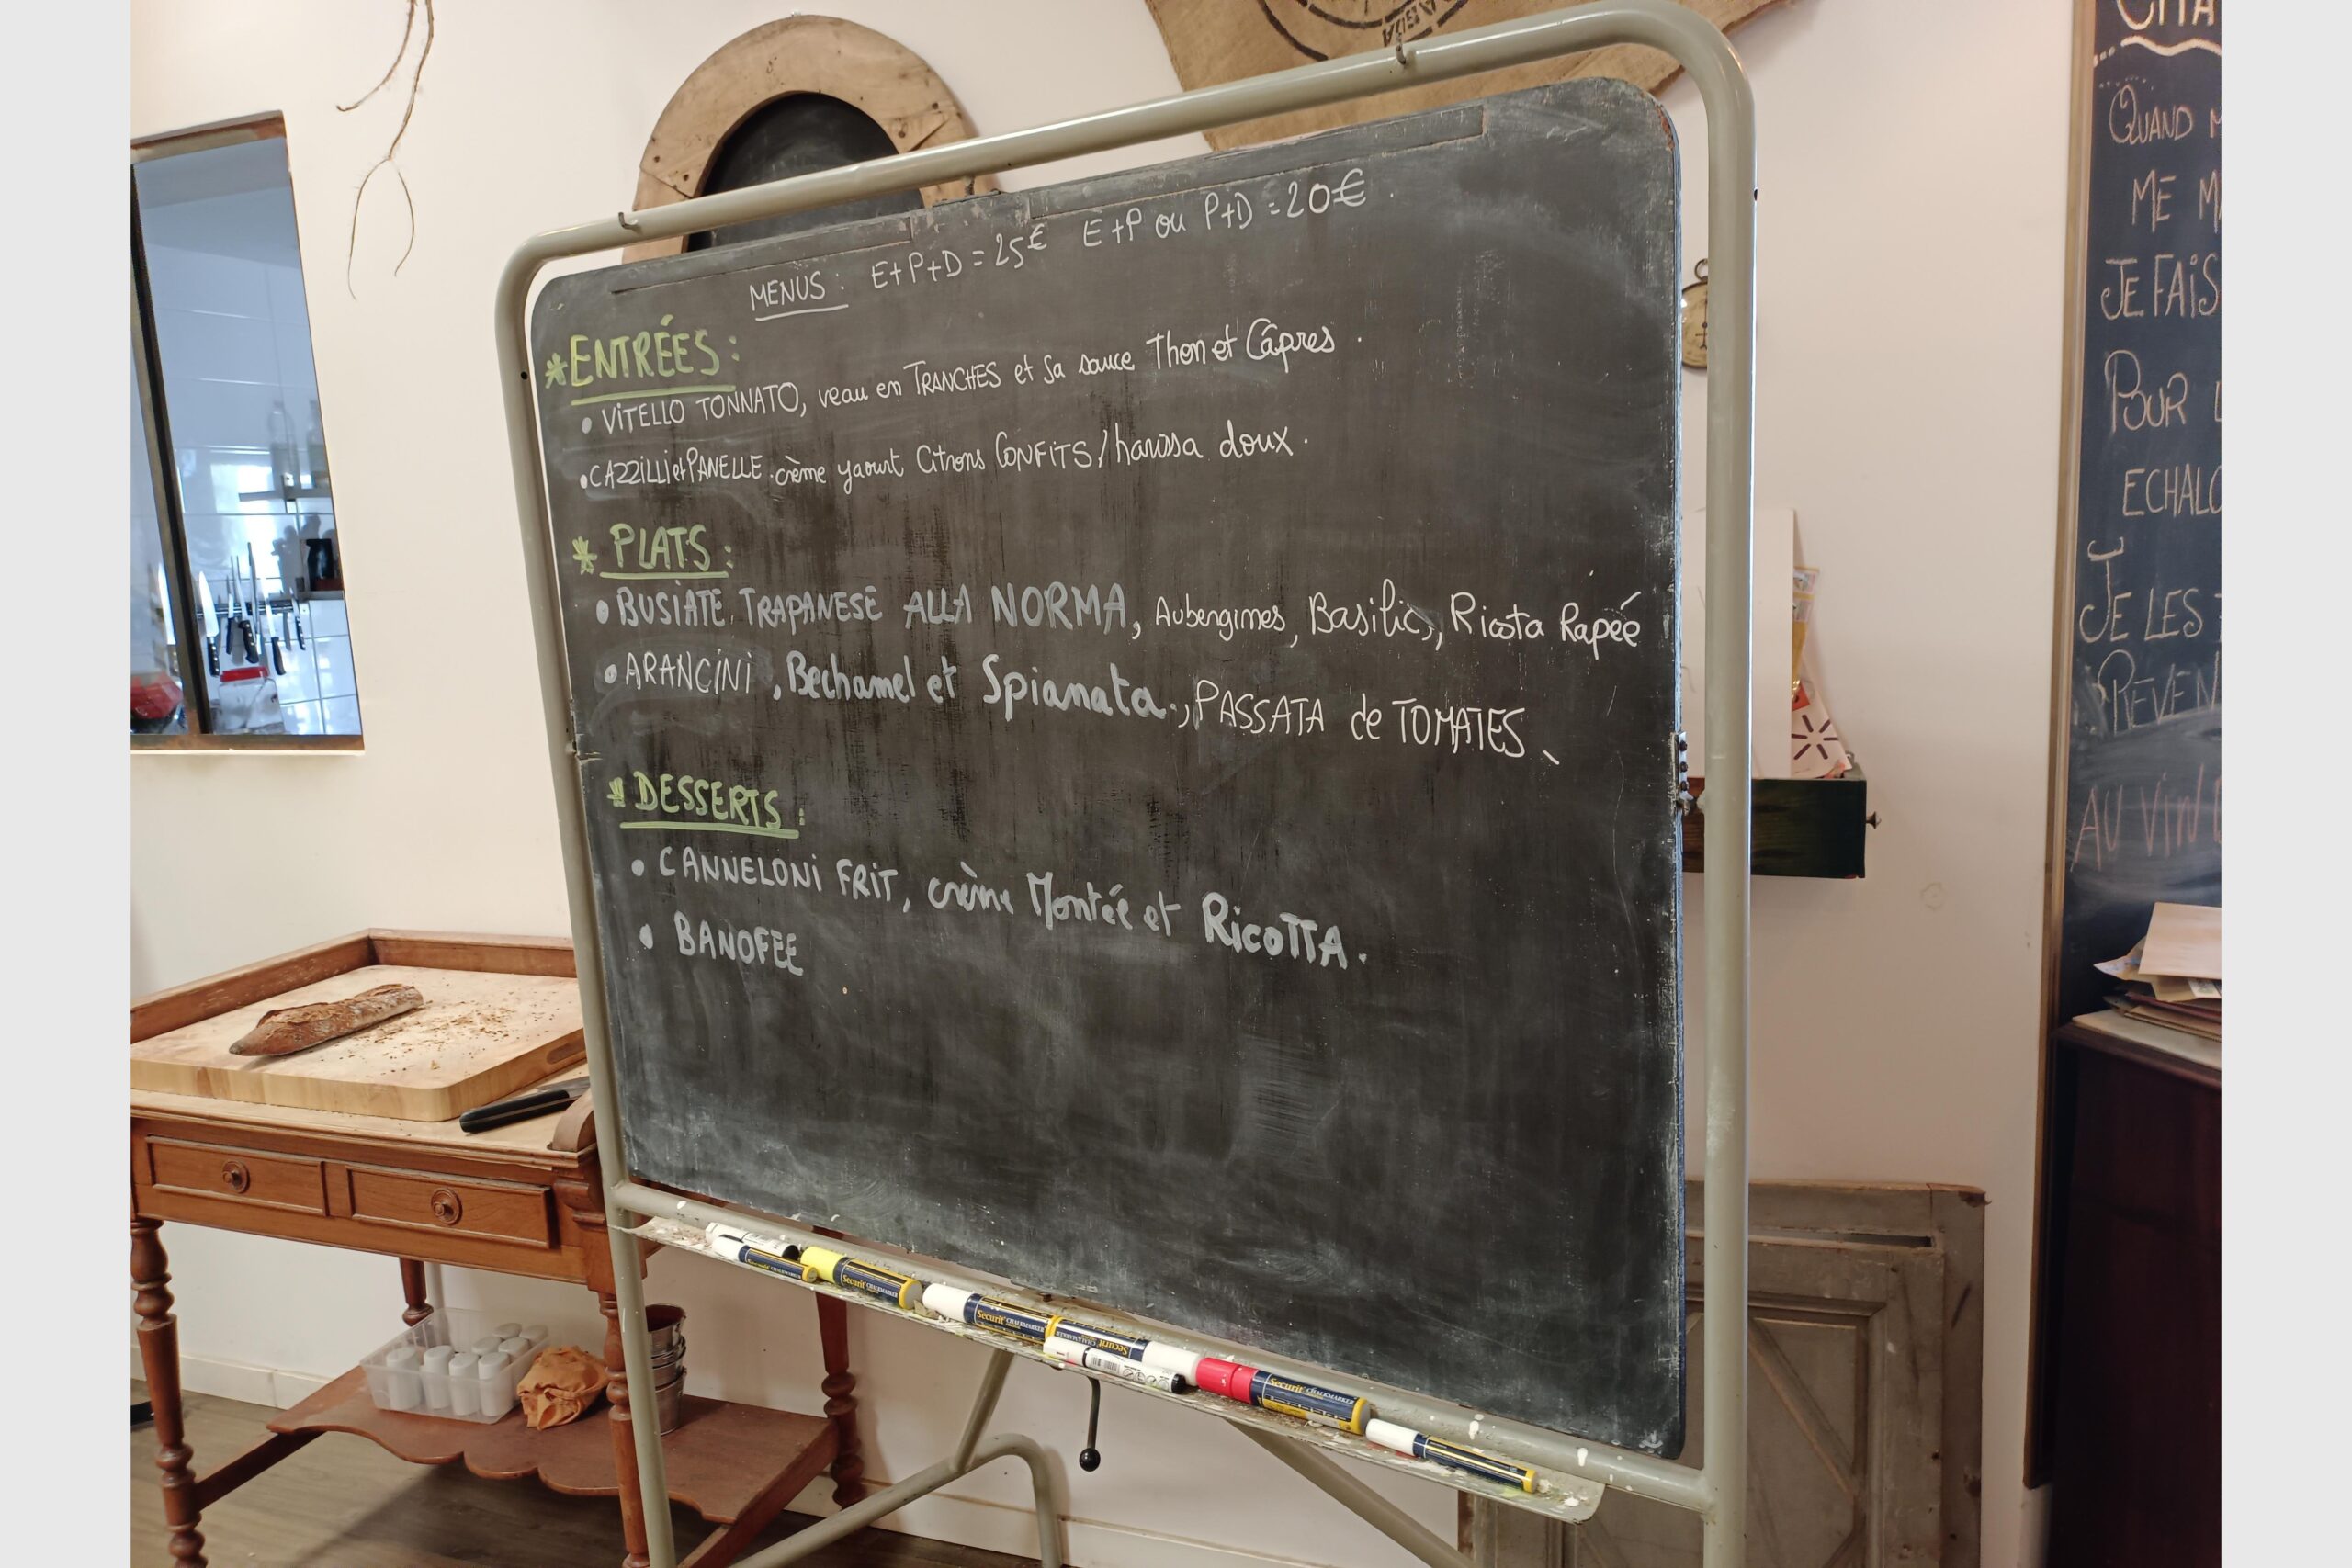 MENUS : E+P+D = 25€ E+P ou P+D = 20€.
*ENTRÉES :
• VITELLO TONNATO, veau en TRANCHES et sa sauce Thon et Câpres.
• CAZZILLI et PANELLE. crème yaourt Citrons CONFITS / harissa doux.
* PLATS :
• BUSIATE TRAPANESE ALLA NORMA, Aubengimes, Basilic, Ricota Rapéé
• ARANCINI, Bechamel et Spianata., PASSATA de TOMATES.
* DESSERTS :
• CANNELONI FRIT, crème Montée et RICOTTA.
• BANOFEE
CITA
QUAND M
ME M
JE FAIS
POUR L
ECHALO
JE LES
REVEN
AU VIN
Securit CHALKMARKER
Securit CHALKMARKER
Securit CHALKMARKER
Securit
Securit CHALKMARKER
Securit